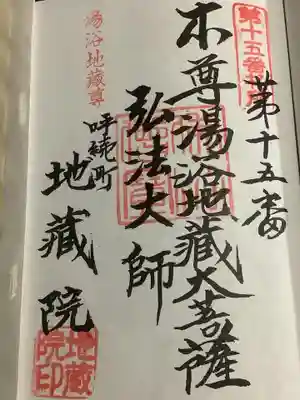 第十五番
本尊湯浴地蔵大菩薩
弘法大師
呼続町
地蔵院
湯浴地蔵尊
地蔵
院印